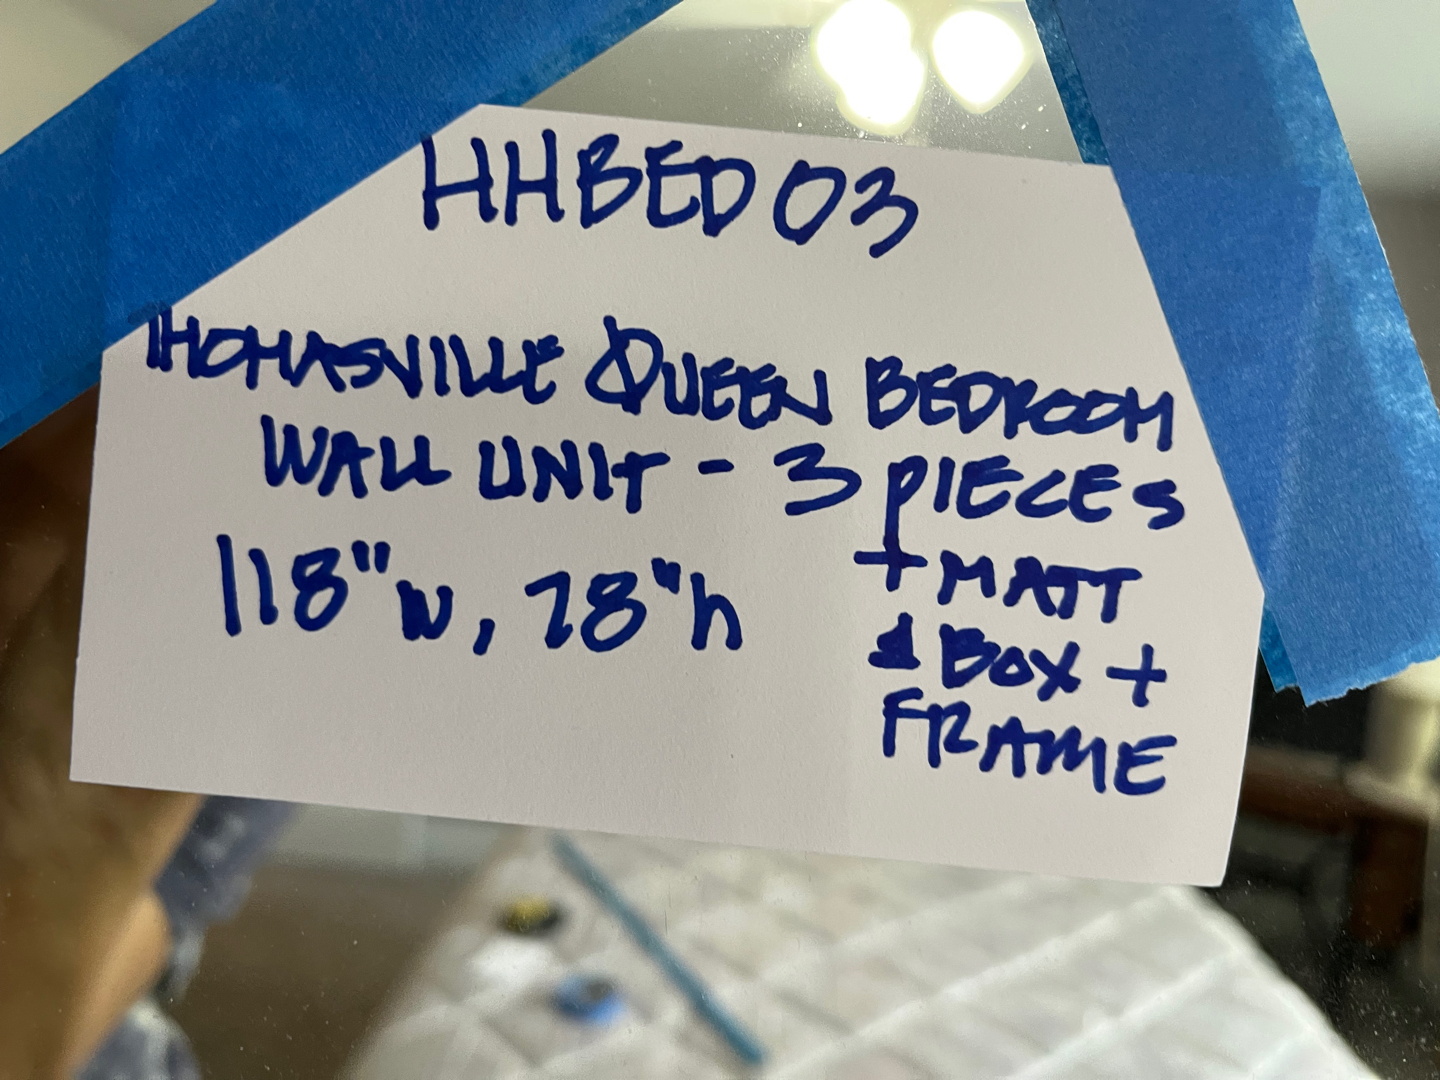 HHBED03
THOMASVILLE QUEEN BEDROOM
WALL UNIT - 3 PIECES
118"w, 78"h
+ MATT
& BOX +
FRAME